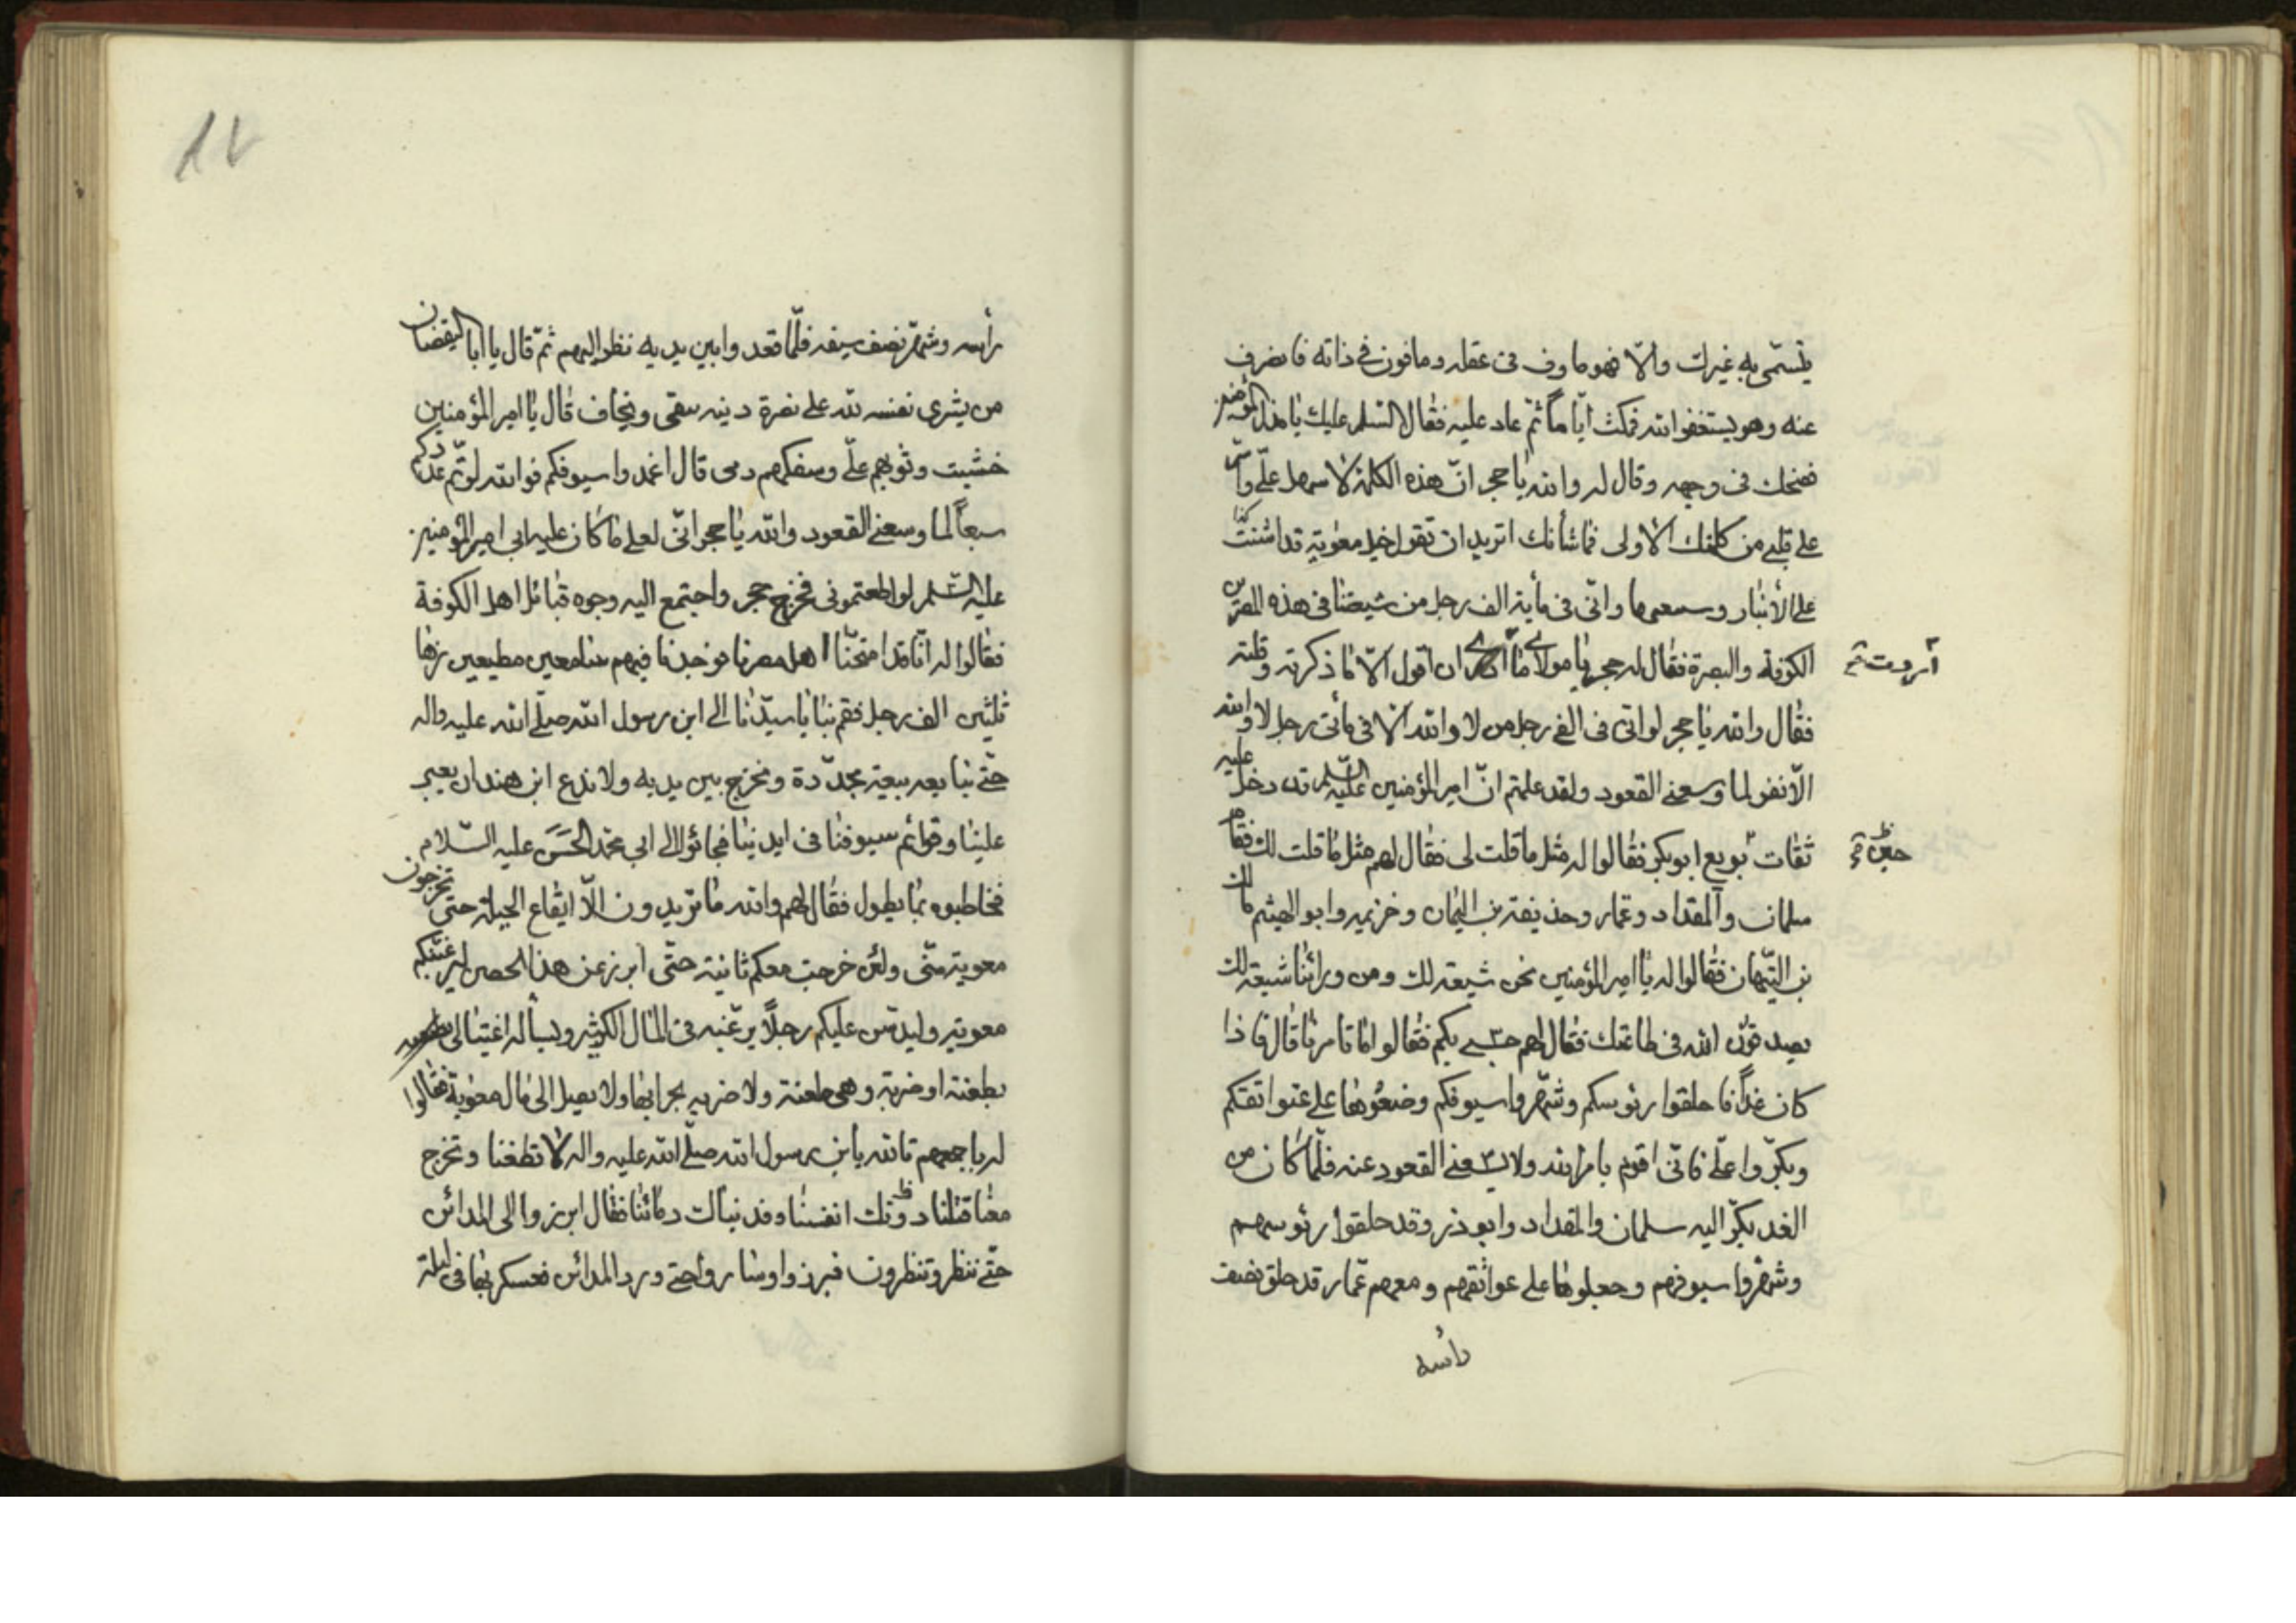 يتسمّى به غيرك والّا فهو ماوف فى عقله ومافون فى ذاته فانصرف
عنه وهو يستغفر الله فمكث ايّاماً ثمّ عاد عليه فقال السّلم عليك يا مذل المؤمنين
فضحك فى وجهه وقال له والله يا حجر انّ هذه الكلمة لاسهل علىّ واسرّ
على قلبى من كلمتك الاولى فما شأنك اتريد ان تقول خيل معوية قد اشتت
على الأنبار وسمعها وانّى فى مأية الف رجل من شيعتنا فى هذه المصرين
الكوفة والبصرة فقال له حجر يا مولاى ما ان اقول الّا ما ذكرته وقلته
اردت
فقال والله يا حجر لو انّى فى الف رجل من لا والله الّا فى مأتى رجل لا والله
الّا نفر لما وسعنى القعود ولقد علمتم انّ امير المؤمنين عليه السّلم قد دخل عليه
ثقات بويع ابو بكر فقالوا له مثل ما قلت لى فقال لهم مثل ما قلت لك فقام
حين
سلمان والمقداد وعمار وحذيفة بن اليمان وخزيمه وابو الهيثم مالك
بن التيّهان فقالوا له يا امير المؤمنين نحن شيعة لك ومن ورائنا شيعة لك
بصدقون الله فى طاعتك فقال لهم حسبى بكم فقالوا ما تامرنا قال فاذا
كان غداً فاحلقوا رئوسكم وشهّروا سيوفكم وضعوها على عتواتقكم
وبكّروا علىّ فانّى اقوم بامر الله ولا يسعنى القعود عنه فلمّا كان من
الغد بكّر اليه سلمان والمقداد وابو ذر وقد حلقوا رئوسهم
وشهّروا سيوفهم وجعلوها على عواتقهم ومعهم عمّار قد حلق نصف
رأسه
١٧
رأسه وشهّر نصف سيفه فلمّا قعدوا بين يديه نظر اليهم ثمّ قال يا ابا اليقضان
من يشرى نفسه لله على نصرة دينه يبقى ويخاف قال يا امير المؤمنين
خشيت وثوبهم علىّ وسفكهم دمى قال اغمدوا سيوفكم فوالله لو تم عددكم
سبعاً لما وسعنى القعود والله يا حجر انّى لعلى ما كان عليه ابى امير المؤمنين
عليه السّلم لو اطعتمونى فخرج حجر واجتمع اليه وجوه قبائل اهل الكوفة
فقالوا له انّا قد امتحنّا اهل مصرنا فوجدنا فيهم سامعين مطيعين زها
ثلثين الف رجل فقم بنا يا سيّدنا الى ابن رسول الله صلّى الله عليه واله
حتّى نبايعه بيعة مجدّدة ونخرج بين يديه ولا ندع ابن هند ان يعير
علينا وقوائم سيوفنا فى ايدينا فجائوا الى ابى محمد الحَسَن عليه السّلام
فخاطبوه بما يطول فقال لهم والله ما تريدون الّا ايقاع الحيلة حتى تخرجون
معوية منّى ولئن خرجت معكم ثانية حتّى ابرز عن هذا الحصن ليرغبنكم
معوية وليدسّ عليكم رجلاً يرغّبه فى المال الكثير ويسأله اغتيالى
بطعنة او ضربة وهى طعنة ولا ضربه يجرا بها ولا يصل الى مال معوية فقالوا
له باجمعهم تالله يا بن رسول الله صلّى الله عليه واله لا تطغنا وتخرج
معنا قتلنا دونك انفسنا دمائنا فقال ابرزوا الى المدائن
حتّى ننظر وتنظرون فبرزوا وساروا حتى ورد المدائن فعسكر بها فى ليلة